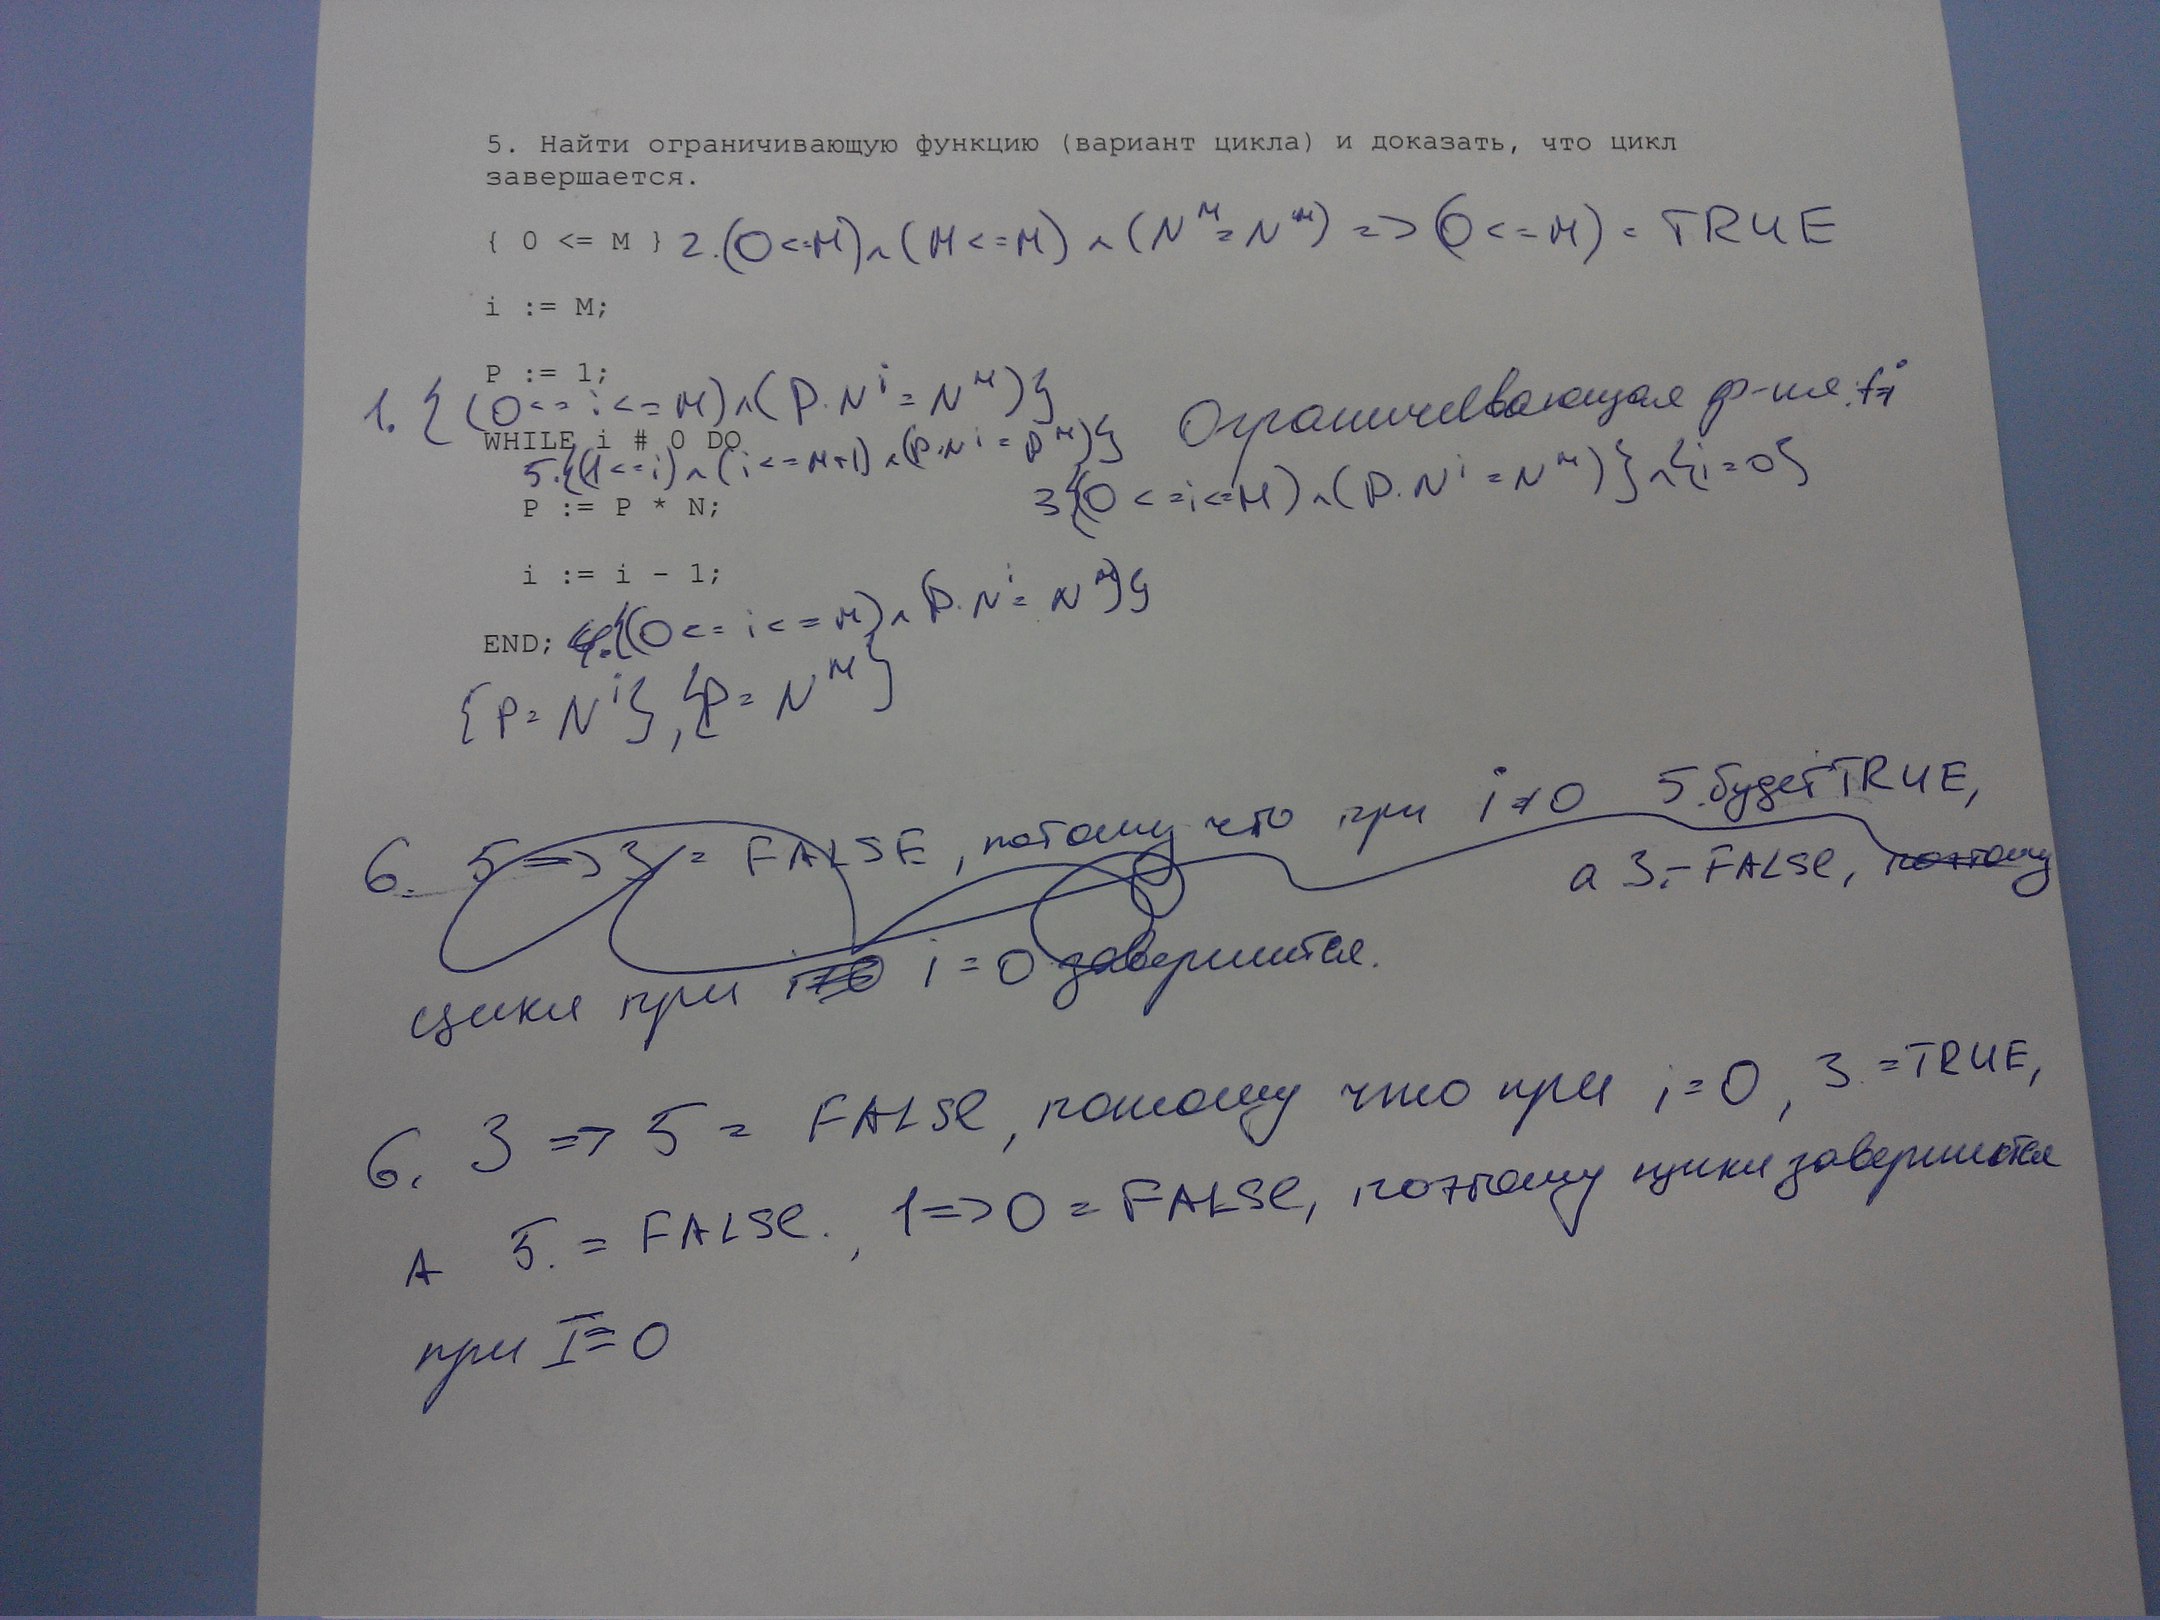 5. Найти ограничивающую функцию (вариант цикла) и доказать, что цикл
завершается.
{ 0 <= M } 2.(0<=M)∧(M<=M) ∧ (N^M = N^M) => (0<=M) = TRUE
i := M;
P := 1;
1. {(0<=i<=M)∧(P·N^i = N^M)} Ограничивающая ф-ия: f=i
WHILE i # 0 DO
5.{(1<=i)∧(i<=M+1)∧(P·N^i = P^M)}
3{(0<=i<=M)∧(P·N^i = N^M)}∧{i=0}
P := P * N;
i := i - 1;
END; 4.{(0<=i<=M)∧(P·N^i = N^M)}
{P=N^i}, {P=N^M}
6. 5 => 3 = FALSE, потому что при i≠0 5.будет TRUE,
а 3.-FALSE, поэтому
цикл при i≠0 i=0 завершится.
6. 3 => 5 = FALSE, потому что при i=0, 3.=TRUE,
А 5.= FALSE., 1=>0 = FALSE, поэтому цикл завершится
при I=0